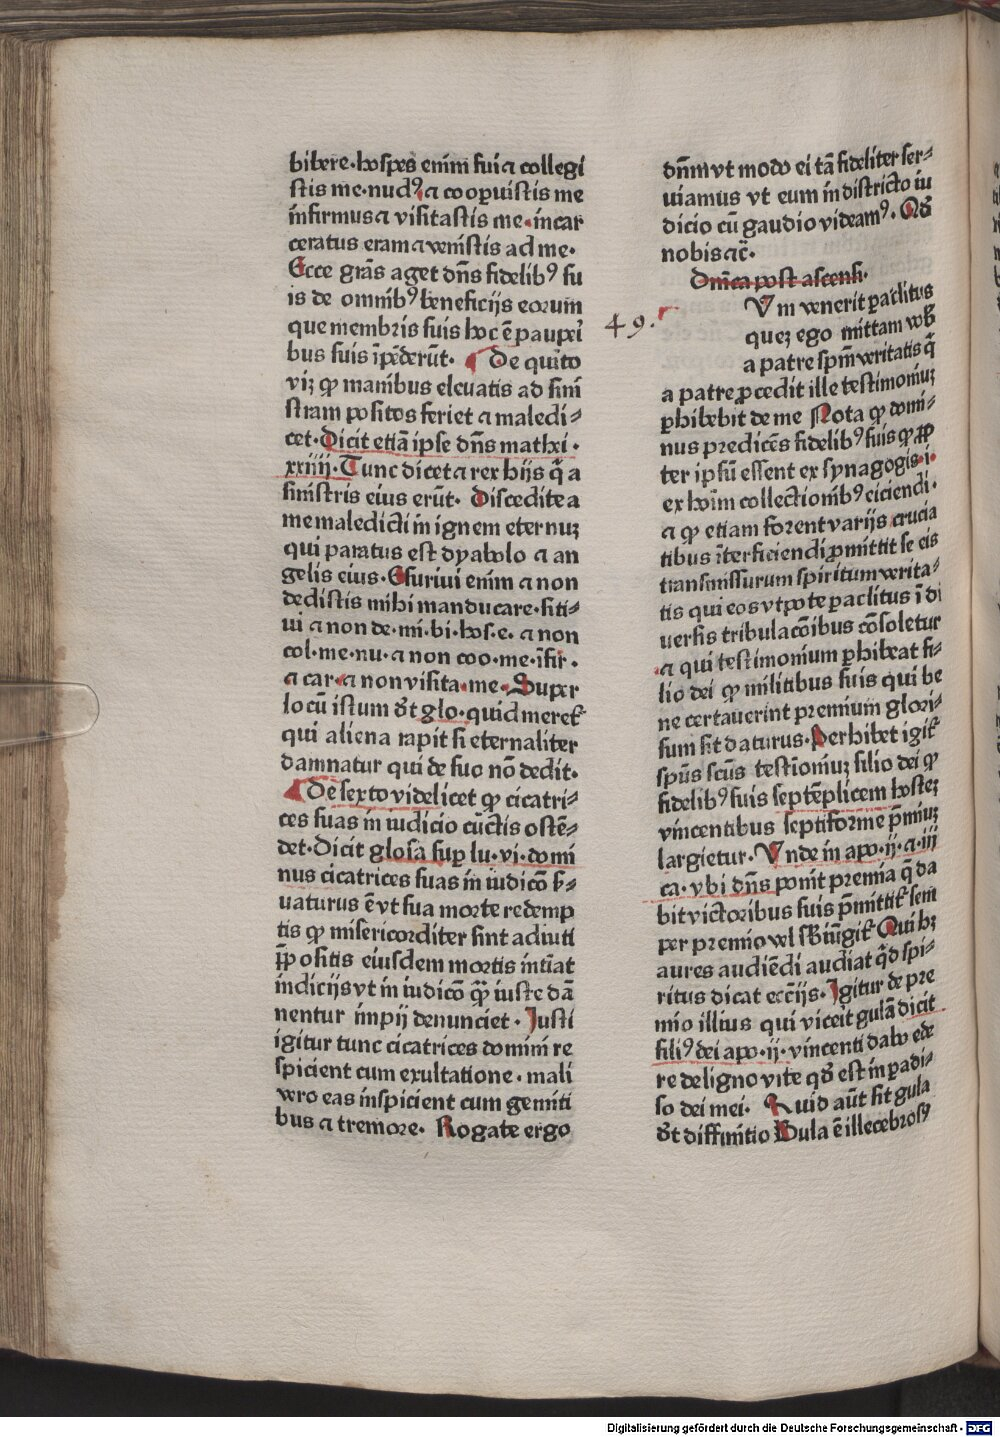 bibere·hospes enim fui ⁊ collegi
stis me·nudꝰ ⁊ cooꝑuistis me
infirmus ⁊ visitastis me·incar
ceratus eram ⁊ venistis ad me·
Ecce grãs aget dñs fidelibꝰ su
is de omnibꝰ beneficijs eorum
que membris suis hoc ẽ pauperi
bus suis ĩpẽderũt· De quĩto
viꝫ ꝙ manibus eleuatis ad sini
stram positos feriet ⁊ maledi⸗
cet·Dicit etiã ipse dñs mathei·
xxiiij·Tunc dicet ⁊ rex hijs q̃ a
sinistris eius erũt· Discedite a
me maledicti in ignem eternuꝫ
qui paratus est dyabolo ⁊ an
gelis eius·Esuriui enim ⁊ non
dedistis mihi manducare·siti⸗
ui ⁊ non de·mi·bi·hos·e·⁊ non
col·me·nu·⁊ non coo·me·ĩfir·
⁊ car·⁊ non visita·me·Super
locũ istum dt̃ glo·quid meret̃
qui aliena rapit si eternaliter
damnatur qui de suo nõ dedit·
De sexto videlicet ꝙ cicatri⸗
ces suas in iudicio cũctis ostẽ⸗
det·Dicit glosa suꝑ lu·vi·domi
nus cicatrices suas in iudicõ ẜ⸗
uaturus ẽ vt sua morte redemp
tis ꝙ misericorditer sint adiuti
ꝓpositis eiusdem mortis intiat
indicijs vt in iudicõ q̃ iuste dã
nentur impij denunciet· Justi
igitur tunc cicatrices domini re
spicient cum exultatione·mali
vero eas inspicient cum gemiti
bus ⁊ tremore· Rogate ergo
dñm vt modo ei tã fideliter ser⸗
uiamus vt eum in districto iu
dicio cũ gaudio videamꝰ· Qd̃
nobis ⁊c̃·
Dñica post ascens̃·
49·
Vm venerit paclitus
queꝫ ego mittam vob̃
a patre spm̃ veritatis q̃
a patre ꝓcedit ille testimoniuꝫ
ꝑhibebit de me Nota ꝙ domi⸗
nus predicẽs fidelibꝰ suis ꝙ ꝓp
ter ipsũ essent ex synagogis·i·
ex hoĩm collectionibꝰ eiciendi·
⁊ ꝙ etiam forent varijs crucia
tibus ĩterficiendi ꝓmittit se eis
transmissurum spiritum verita⸗
tis qui eos vtpote paclitus ĩ di
uersis tribulacõibus cõsoletur
⁊ qui testimonium ꝑhibeat fi⸗
lio dei ꝙ militibus suis qui be
ne certauerint premium glori⸗
sum sit daturus·Perhibet igit̃
spũs scũs testĩoniuꝫ filio dei ꝙ
fidelibꝰ suis septẽplicem hosteꝫ
vincentibus septiforme p̃miuꝫ
largietur·Vnde in apo·ij·⁊·iij
ca·vbi dñs ponit premia q̃ da
bit victoribus suis p̃mittit̃ sem
per premio vel sbiũgit̃ Qui hꝫ
aures audiẽdi audiat q̃d spi⸗
ritus dicat ecc̃ijs·Igitur de pre
mio illius qui vicerit gulã dicit
filiꝰ dei apo·ij·vincenti dabo ede
re de ligno vite qd̃ est in padi⸗
so dei mei· Quid aũt sit gula
dt̃ diffinitio Gula ẽ illecebrosꝰ
Digitalisierung gefördert durch die Deutsche Forschungsgemeinschaft · DFG